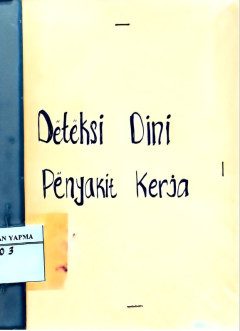 Dëtéksi Dini
Pënyakit Kerja
AN YAPMA
03